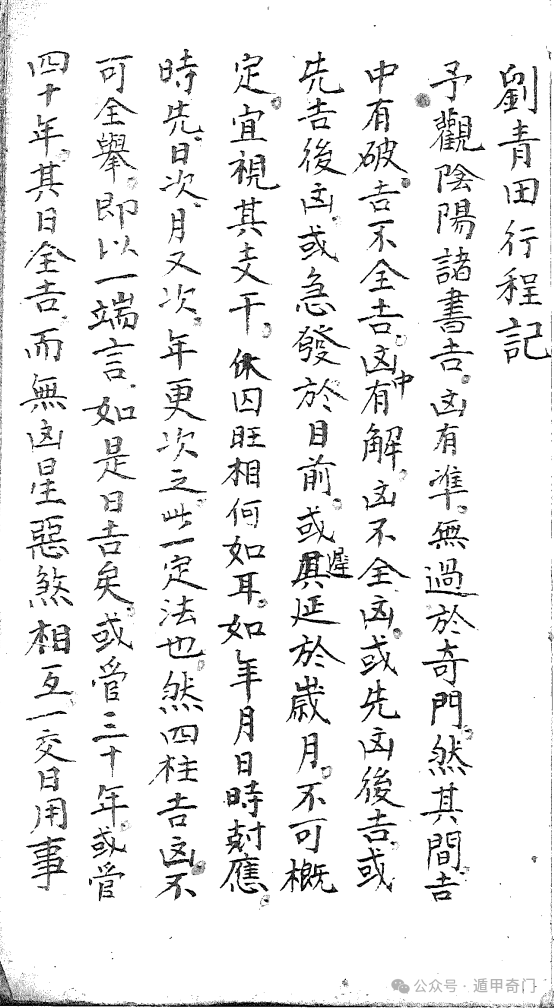 劉青田行程記
予觀陰陽諸書吉凶有準無過於奇門然其間吉
中有破吉不全吉凶中有解凶不全凶或先凶後吉或
先吉後凶或急發於目前或遲延於歲月不可概
定宜視其支干休囚旺相何如耳如年月日時尅應
時先日次月又次年更次之此一定法也然四柱吉凶不
可全舉即以一端言如是日吉矣或管三十年或管
四十年其日全吉而無凶星惡煞相互一交日用事
公众号·遁甲奇门